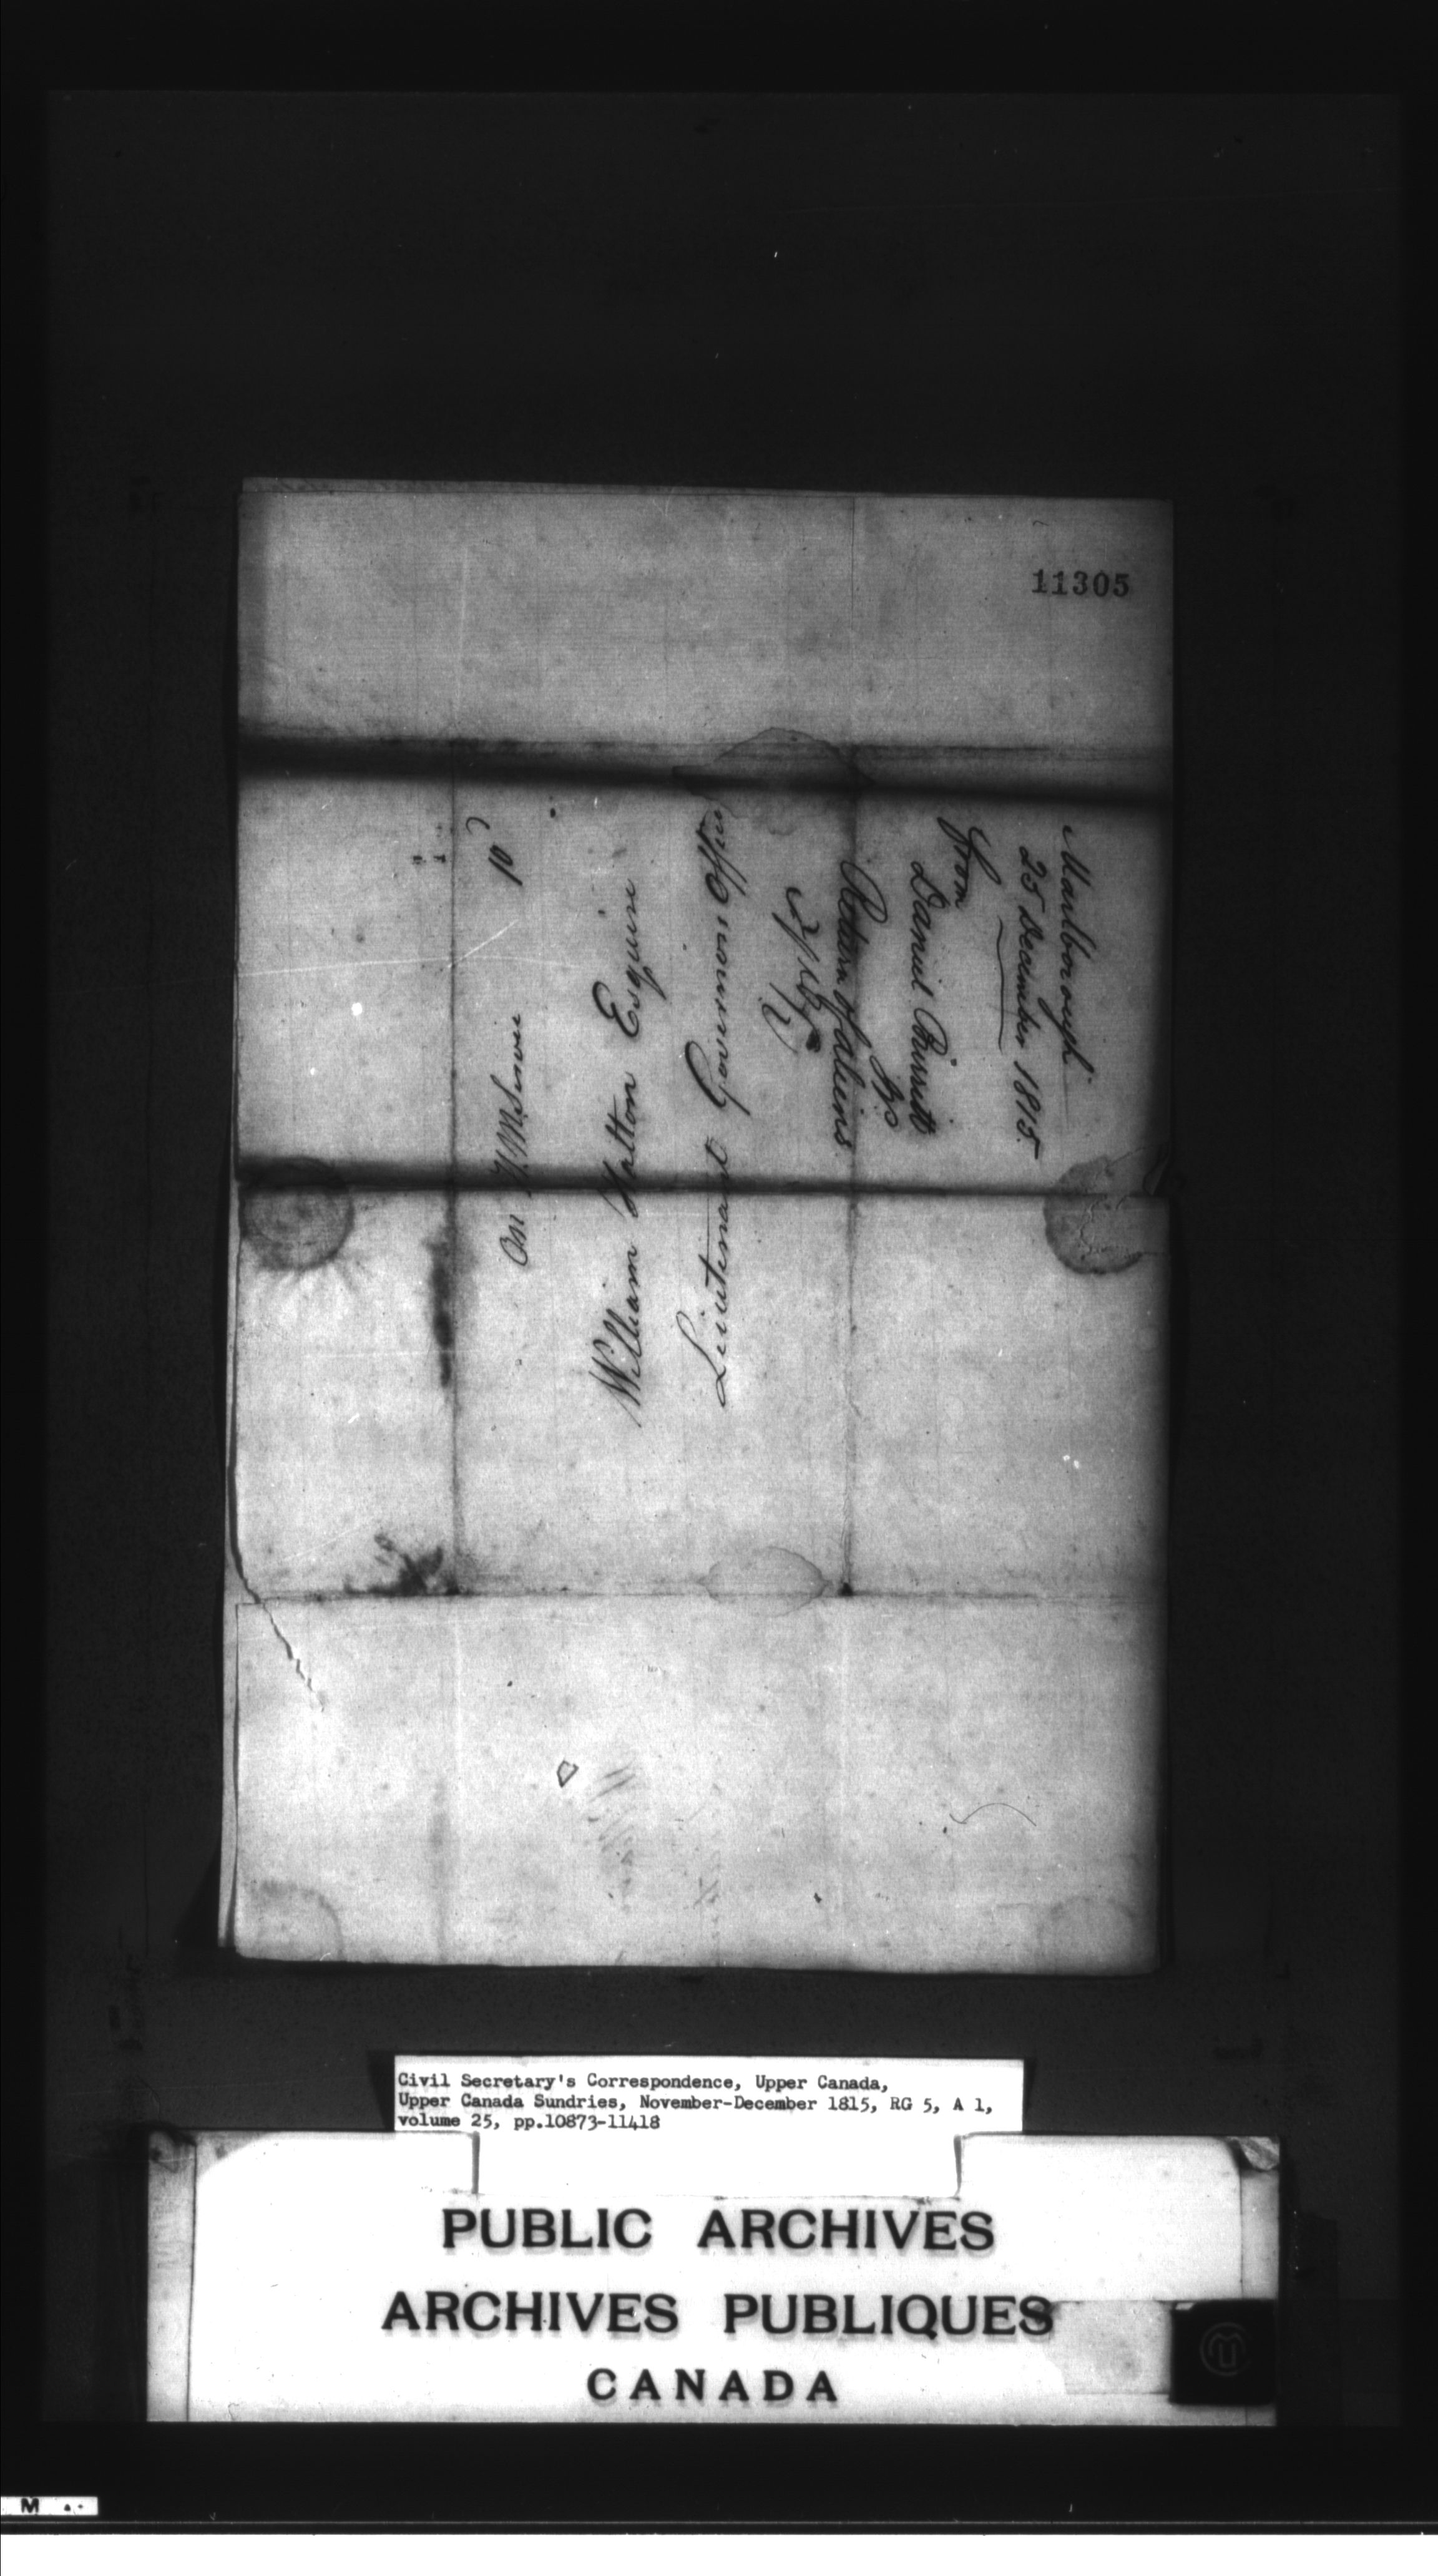 11305
Marlborough
25 December 1815.
from
Daniel Burritt
Return of aliens
On H. M. Service
William Halton Esquire
Lieutenant Governors Office
Civil Secretary's Correspondence, Upper Canada,
Upper Canada Sundries, November-December 1815, RG 5, A 1,
volume 25, pp.10873-11418
PUBLIC ARCHIVES
ARCHIVES PUBLIQUES
CANADA
M